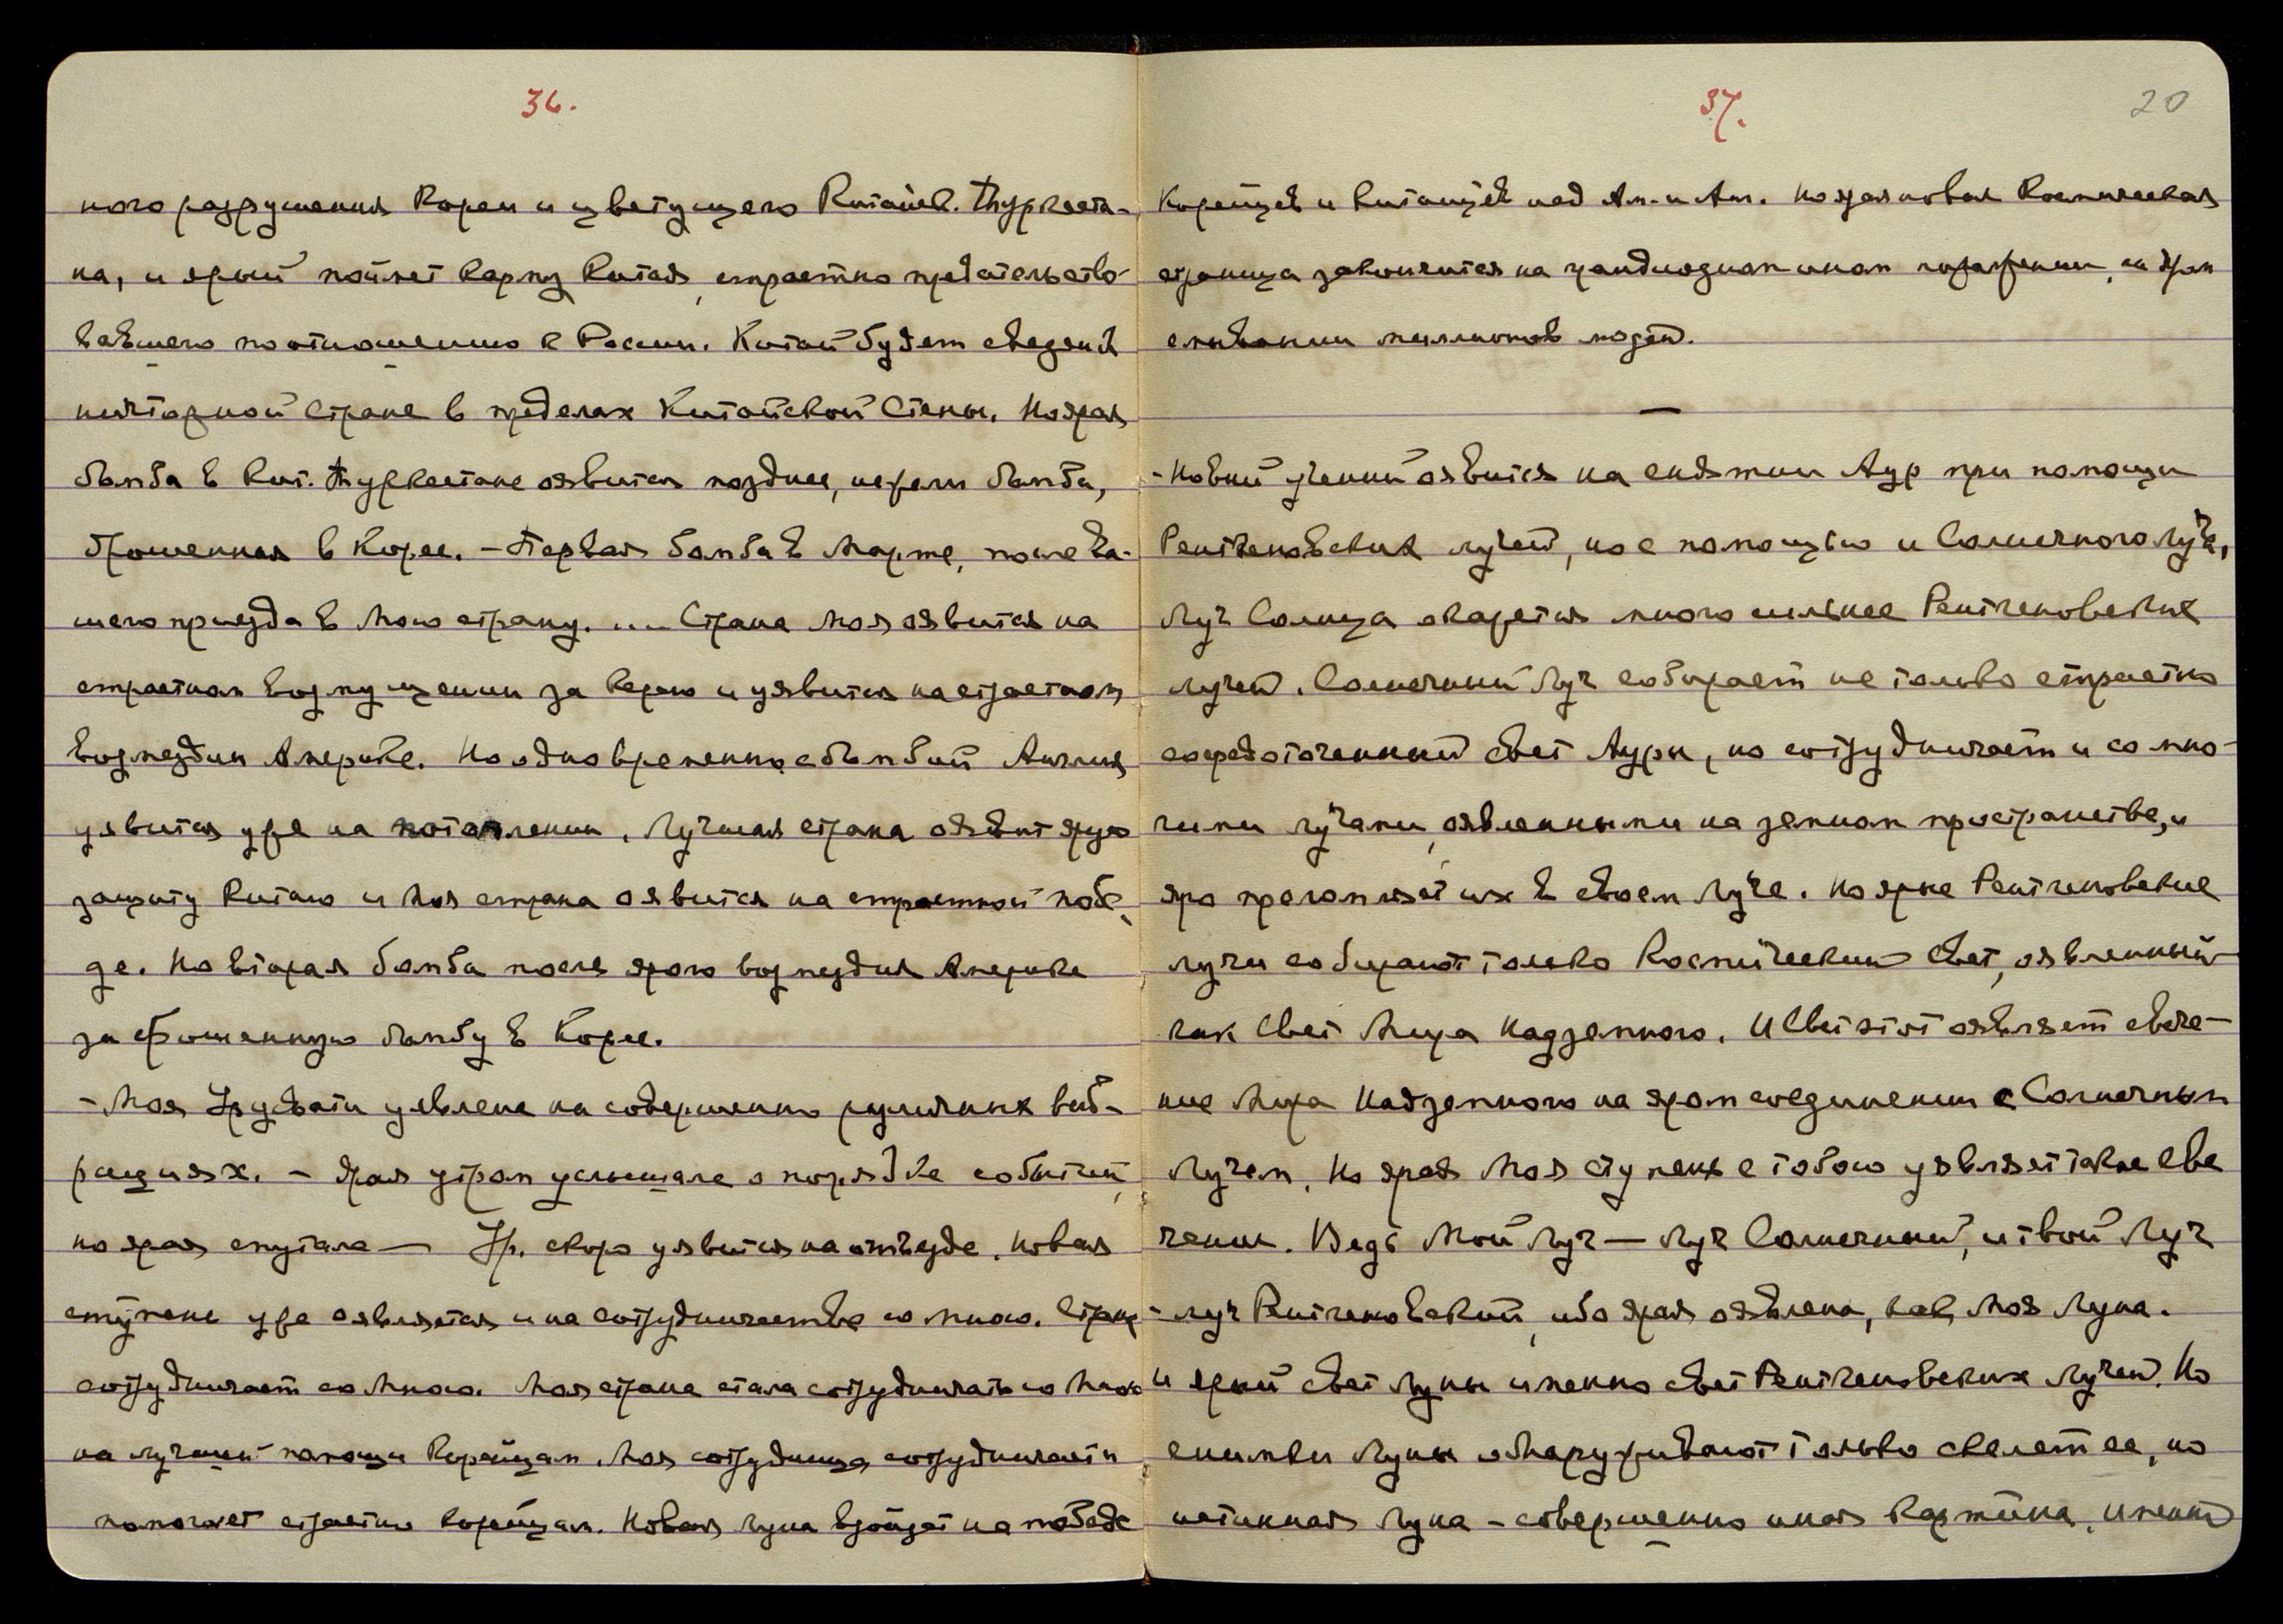 36.
ного разрушения Кореи и цветущего Китайск. Туркеста-
на, и ярый поймет Карму Китая, страстно предательство-
вавшего по отношению к России. Китай будет сведен к
ничтожной стране в пределах Китайской Стены. Но ярая
бомба в Кит. Туркестане оявится позднее, нежели бомба,
брошенная в Корее. – Первая бомба в Марте, после Ва-
шего приезда в Мою страну. .... Страна Моя оявится на
страстном возмущении за Корею и уявится на страстном
возмездии Америке. Но одновременно с бомбой Англия
уявится уже на потоплении. Лучшая страна оявит ярую
защиту Китаю и Моя страна оявится на страстной побе-
де. Но вторая бомба после ярого возмездия Америке
за брошенную бомбу в Корее.
– Моя Урусвати уявлена на совершенно различных виб-
рациях. – Ярая утром услышала о порядке событий,
но ярая спутала — Ур. скоро уявится на отъезде. Новая
ступень уже оявляется и на сотрудничестве со Мною. Страна
сотрудничает со Мною. Моя страна стала сотрудничать со Мною
на лучшей помощи Корейцам. Моя сотрудница сотрудничает и
помогает страстно Корейцам. Новая Луна взойдет на победе
37.
20
Корейцев и Китайцев над Ам. и Ан. Но ярая новая Космическая
страница закончится на грандиозном ином поражении, и яром
миллионов людей.
—
– Новый ученый оявится на снятии Аур при помощи
Рентгеновских лучей, но с помощью и Солнечного Луча,
Луч Солнца окажется много сильнее Рентгеновских
лучей. Солнечный Луч собирает не только страстно
сосредоточенный свет Ауры, но сотрудничает и со мно-
гими лучами, оявленными на земном пространстве, и
яро преломляет их в своем Луче. Но яркие Рентгеновские
лучи собирают только Космический Свет, оявленный
как Свет Мира Надземного. И Свет этот оявляет свече-
ние Мира Надземного на яром соединении с Солнечным
Лучем. Но ярая Моя ступень с тобою уявляет такое све
чение. Ведь Мой Луч — Луч Солнечный, и твой Луч
– луч Рентгеновский, ибо ярая оявлена, как Моя Луна.
и яркий свет Луны именно свет Рентгеновских Лучей. Но
снимки Луны обнаруживают только скелет ее, но
истинная Луна – совершенно иная картина. Именно